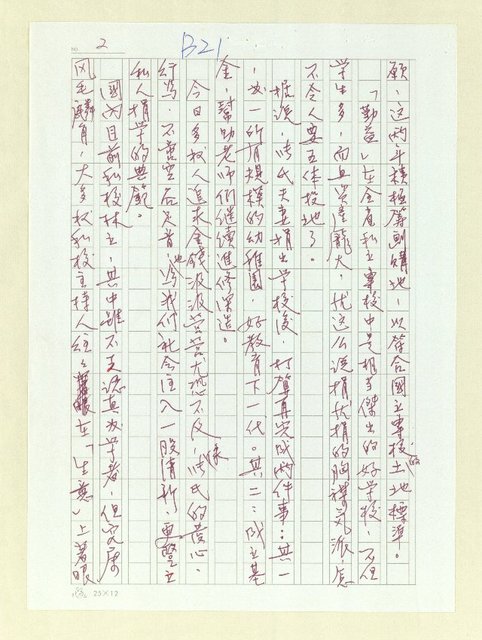 NO. 2
B21
願，這兩年積極籌劃購地，以符合國立專校的土地標準。
「勤益」在全省私立專校中是相當傑出的好學校，不但
學生多，而且資產龐大，就這么說捐就捐的胸襟氣派，怎
不令人要五体投地了。
據說，張氏夫妻捐出學校後，打算再完成兩件事：其一
，办一所有規模的幼稚園，好教育下一代。其二：成立基
金，幫助老師们继續進修深造。
今日多权人追求金錢汲汲营营尤恐不及，張氏的苦心
行為，不啻空谷足音，也為我们社会注入一股清新，更豎立
私人捐學的典範。
國內目前私校林立，其中雖不乏認真办學者，但究屬
凤毛麟角，大多权私校主持人往往在「生意」上著眼
25×12